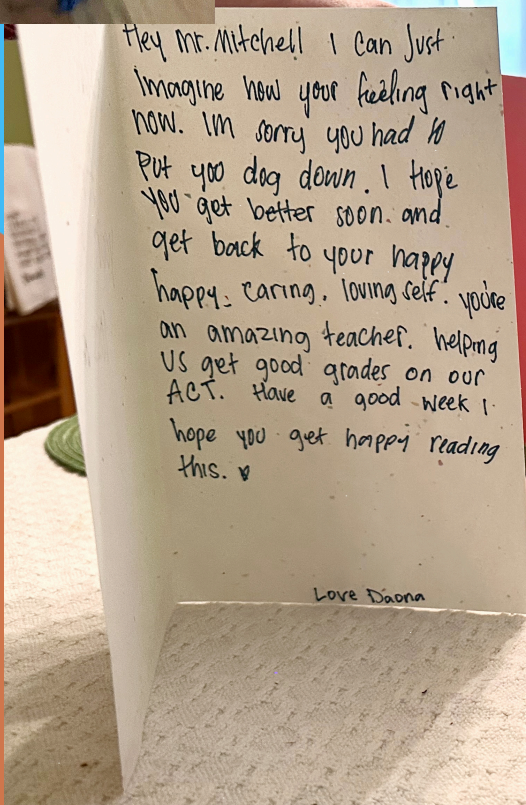 Hey Mr. Mitchell I can Just
imagine how your feeling right
now. Im sorry you had to
put yoo dog down. I Hope
you get better soon. and
get back to your happy
happy. caring. loving self. you're
an amazing teacher. helping
US get good grades on our
ACT. Have a good week I
hope you get happy reading
this.
Love Daona